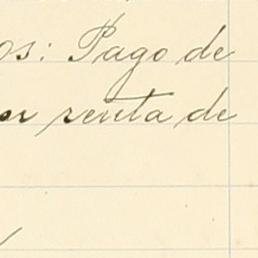 os: Pago de
or renta de